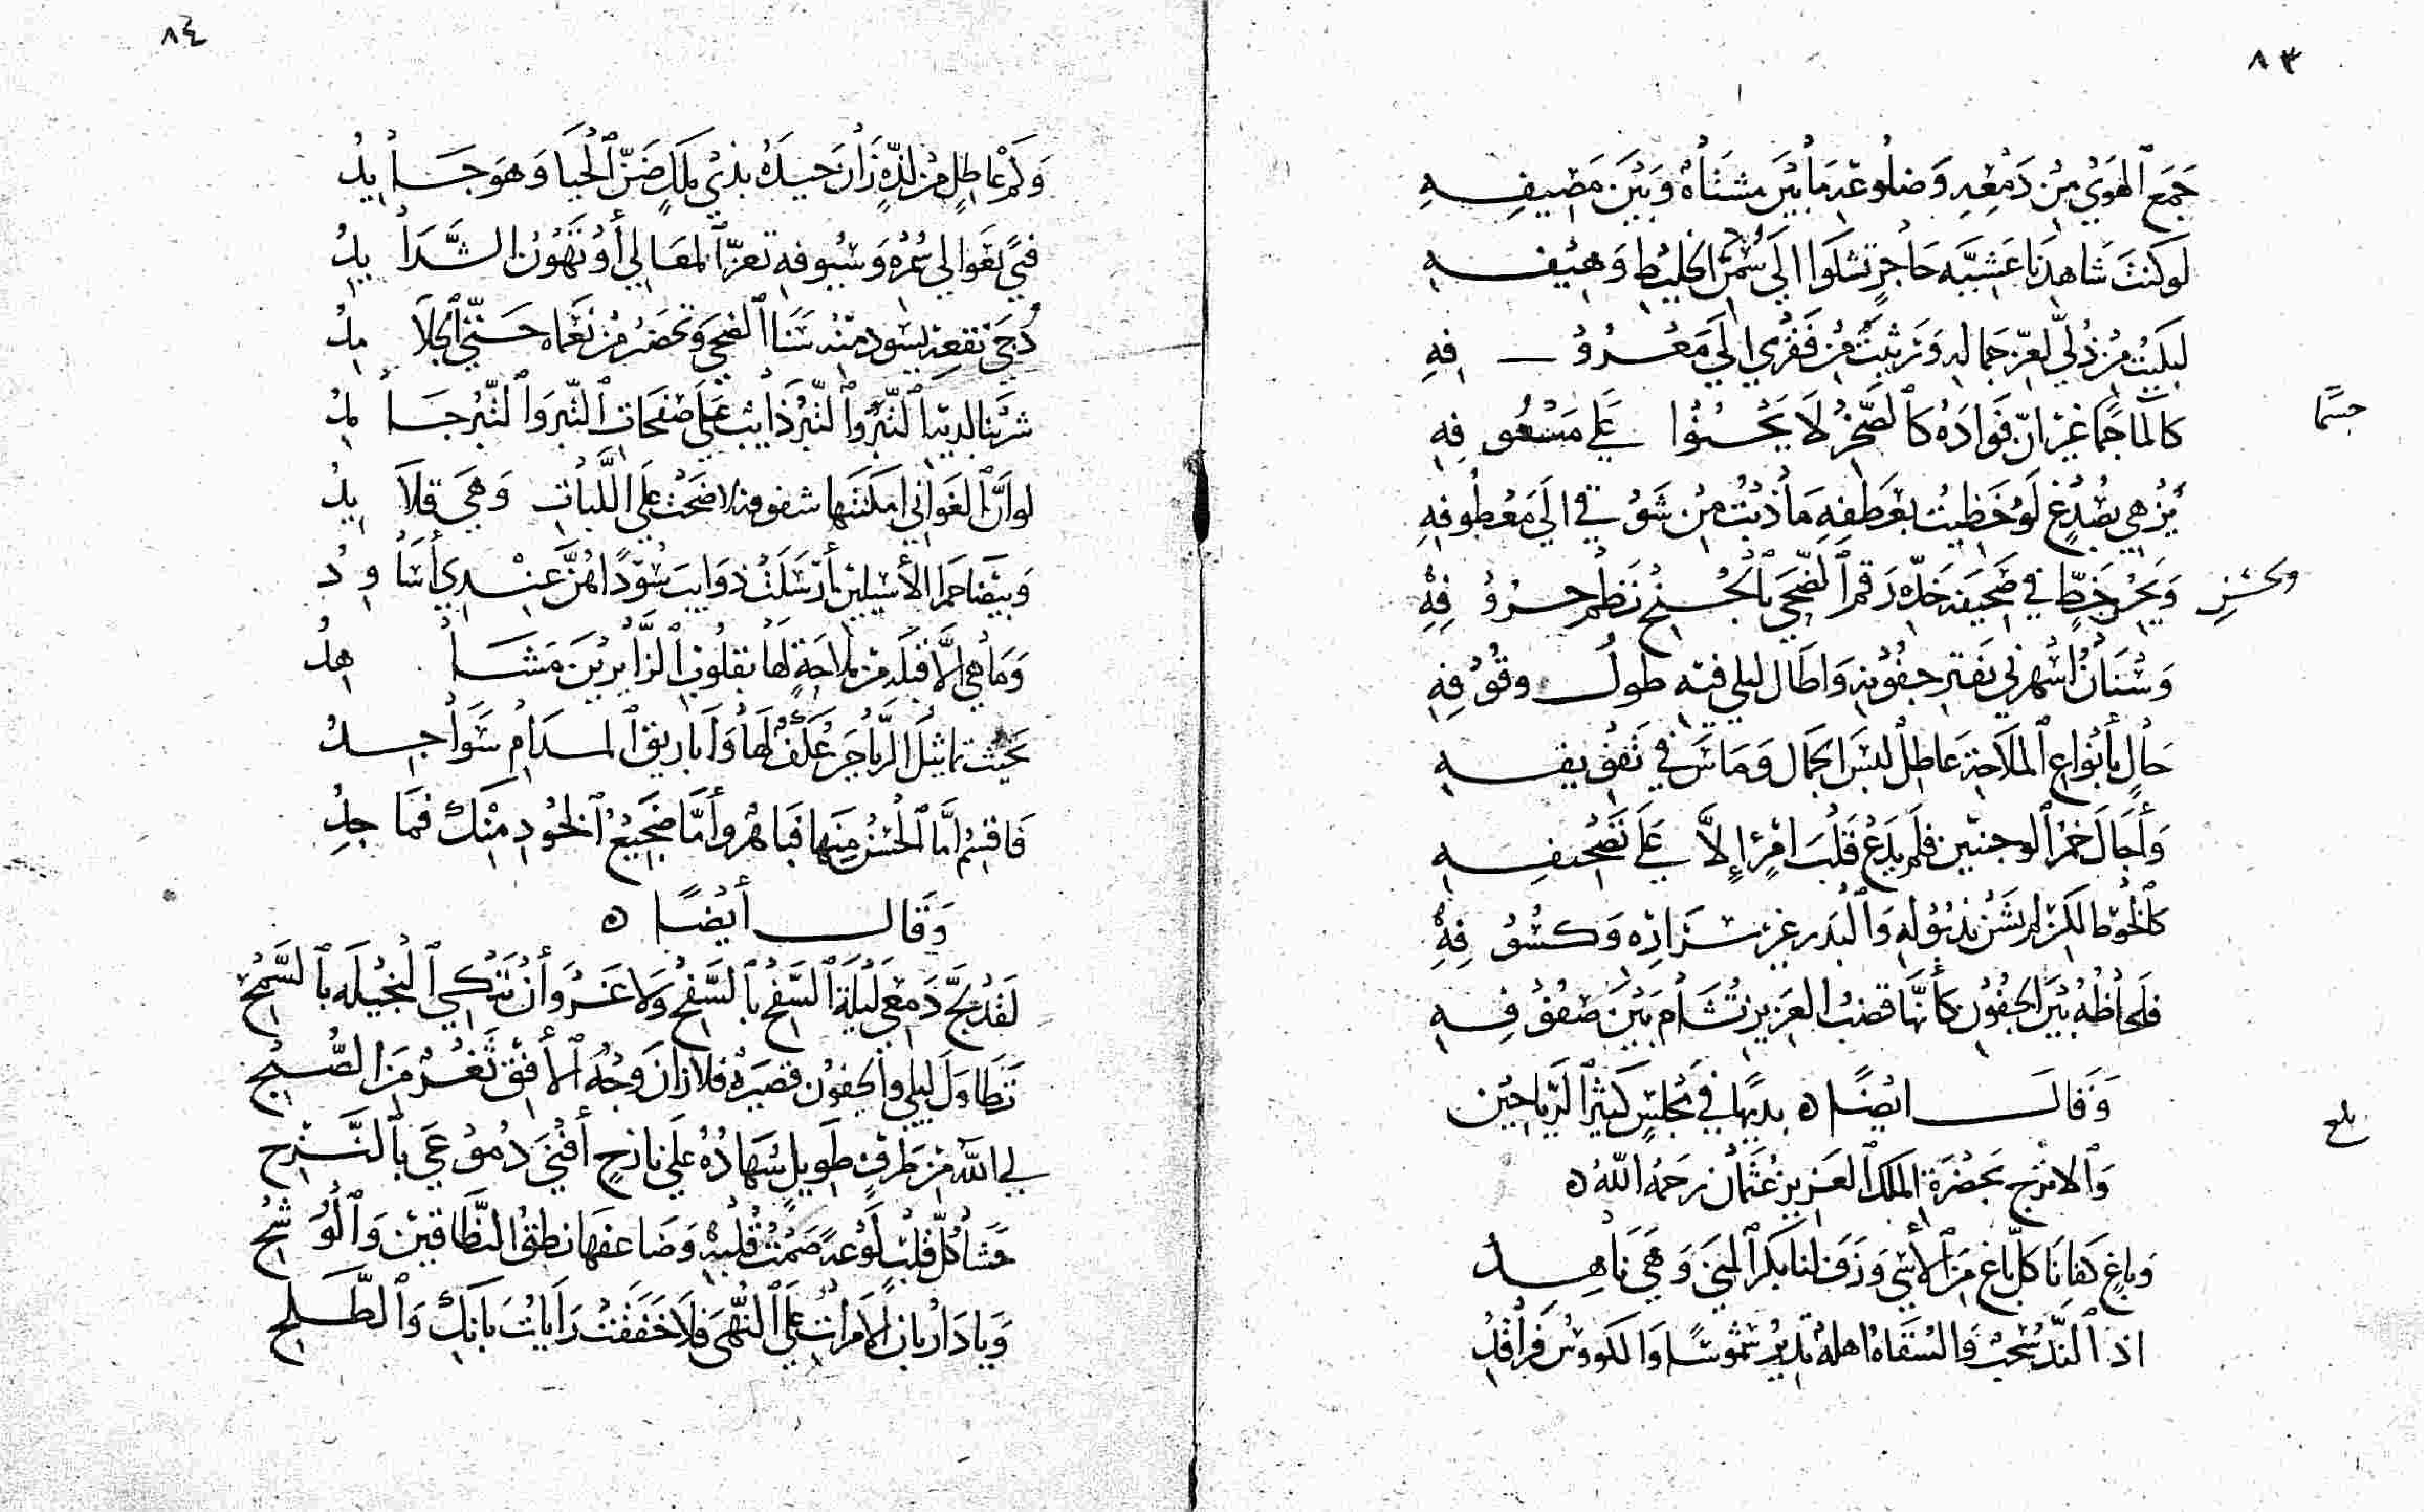 ٨٣
جَمَعَ الهَوَى مِنْ دَمْعِهِ وَضلُوعِهِ مَا بَيْنَ مَشتَاهُ وَبَيْنَ مَصِيفِهِ
لَوكنتَ شَاهِدَنَا عَشيَّةَ حَاجِرٍ نشكوا الى سُمْرِ الخليطِ وَهِيفِهِ
لبكيْتَ مِن ذُلّي لعِزّ جَمالهِ وَرَثيتَ مِن فَقْري الى مَعْرُوفِهِ
كالمَا جسمًا غيرَ انّ فوَادَهُ كالصَّخرِ لَا يَحْنُوا عَلى مَشْعُوفِهِ
جسمًا
يُزْهى بصُدْغٍ لَوْ حَظيتُ بعَطفِهِ مَا ذبْتُ مِن شَوْقي الى مَعْطُوفِهِ
وَبحُسْنِ خطٍّ في صَحِيفَةِ خَدّه رَقمَ الضّحَى بالجُنْحِ نَظْمَ حرُوفِهِ
وَسْنَانُ اسْهَرَني بفَتْرِ جفُوْنِهِ وَاطَال ليلي فيْه طولُ وقُوْفِهِ
حَالٍ بأنوَاعِ المَلَاحَةِ عَاطِلٌ لبسَ الجمال وَمَاسَ في تَفْويفِهِ
وَأَجَالَ خَمْرَ الوجنتين فلَم يَدَعْ قَلْبَ امْرِئٍ إلَّا عَلى تَصْحِيفِهِ
كالخُوطِ لكن لم يَشِنْ بذبُولِهِ وَالبَدرِ غير سَرَارِهِ وَكسُوفِهِ
فلحاظُهُ بَيْنَ الجفُوْنِ كأنَّهَا قضبُ العَزِيز تُشَامُ بَيْنَ صُفُوْفِهِ
وَقَالَ ايْضًا ه بديهًا في مَجلسٍ كثيْرِ الرّياحيْن
بلغ
وَالاترج بحَضْرَةِ الملك العَزيز عُثمان رَحمَهُ اللهُ ه
وَبَاغٍ كفَانَا كلّ بَاغٍ مِنَ الأَسَى وَزَفَّ لنا بكرَ المنى وَهيَ نَاهِدُ
اذ النَّدُّ سُحْبٌ وَالسُّقَاهُ اهلةٌ تديرُ شمُوسًا وَالكووسُ فرَاقدُ
٨٤
وَكم عَاطِلٍ مِن لذّةٍ زَانَ جيدَهُ بذي مَلكٍ ضَنّ الحَيَا وَهوَ جَايدُ
فتىً بعَوَالي سُمْرِهِ وَسُيُوفِهِ تعزّ المعَالي أوْ تَهُونُ الشَّدَايدُ
دُجَى نقعِهِ يسوَدّ مِنْهُ سَنَا الضّحَى وَتخضرُّ مِن نعْمَاه حَتّى الجلَامدُ
شربْنَا لديْهِ التِّبْرَ وَالتّبْرُ ذَايبٌ عَلَى صَفحَاتِ التّبْرِ وَالتّبْرُ جَامدُ
لوانّ الغَوَاني امكنتْهَا شفوفهُ لاضحَتْ عَلى اللَّبَاتِ وَهيَ قلَايدُ
وَمَا هي إلَّا قبْلَةٌ مِن مَلَاحَةٍ لهَا بقلُوبِ الزّايرينَ مَشَاهِدُ
بحَيْثُ تماثيلُ الرّياحين عكّفٌ لهَا وَأبَاريقُ المدَامِ سَوَاجِدُ
فَاقسِمُ امَّا الحُسْنُ مِنهَا فبَاهرٌ وَأمّا ضجيعُ الخُودِ مِنْكَ فمَاجِدُ
وَقَالَ أيْضًا ه
لقَدْ لَجَّ دَمْعِي ليْلَةَ السَّفْحِ بالسَّفْحِ وَلَا غَرْوَ أنْ تَبْكي البخيلَه بالسَّمْحِ
تَطَاوَلَ ليلي وَالجفونُ قصِيرَةٌ فلا زَانَ وَجْهَ الأفقِ ثَغْرٌ مِنَ الصُّبْحِ
لي اللهُ مِن طَرفٍ طَويلٍ سُهَادُهُ عَلى نازِحٍ أفْنَى دُمُوْعيَ بالنَّزْحِ
وَيَا دَارُ بان الآمِرَاتُ عَلى النُّهَى فلَا خَفَقَتْ رَايَاتُ بَانِكِ وَالطَّلحِ